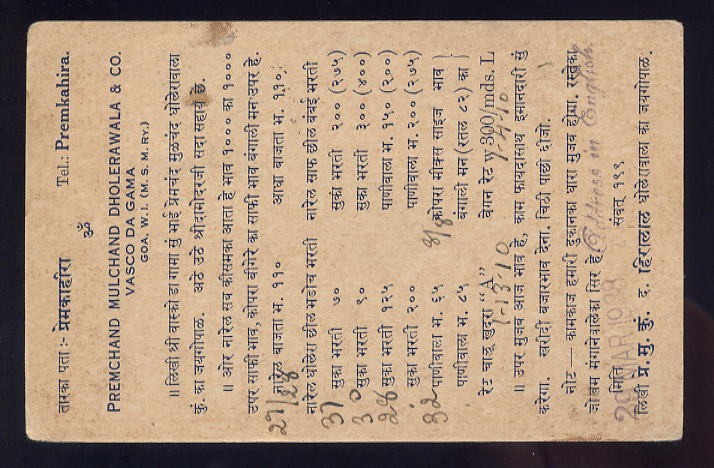 तारका पता :- प्रेमकाहीरा ॐ Tel.: Premkahira.
PREMCHAND MULCHAND DHOLERAWALA & CO.
VASCO DA GAMA
GOA. W. I. (M. S. M. RY.)
॥ लिखी श्री वास्को डा गामा सुं भाई प्रेमचंद मुळचंद धोलेरावाला
कुं. का जयगोपाळ. अठे उठे श्रीदामोदरजी सदा सहाय छे.
॥ ओर नारेल सब कीसमका आता हे भाव १००० का १०००
उपर साफी भाव, कोपरा वीगेरे का साफी भाव बंगाली मन उपर हे.
२९/२८ नारेल बाजता भ. ११० आधा बाजता भ. ११०
नारेल धोलेरा छील भडोच भरती नारेल साफ छील बंबई भरती
31 सुका भरती ७० सुका भरती २०० (२७५)
30 सुका भरती ९० सुका भरती ३०० (४००)
28 सुका भरती १२५ पाणीवाला भ. १५० (२००)
सुका भरती २०० पाणीवाला भ. २०० (२७५)
32 पाणीवाला भ. ६५ कोपरा मीक्स साइज भाव
पाणीवाला भ. ८५ बंगाली मन (रतल ८२) का
रेट चालू खुदरा “A” 1-13-10 वेगन रेट y 300/mds. L 1-4-10
॥ उपर मुजब आज भाव हे, काम फायदासाथ इमानदारी सुं
करेगा. खरीदी बजारभाव देना. चिठी पाछी दीजो.
नोट — कामकाज हमारी दुकानका धारा मुजब होगा. रस्तेका
जोखम मंगानेवालेका सिर हे Address in English.
मिति संवत् १९९
20 MAR 1938
लिखी प्र. मु. कुं. द. हिरालाल धोलेरावाल का जयगोपाळ.